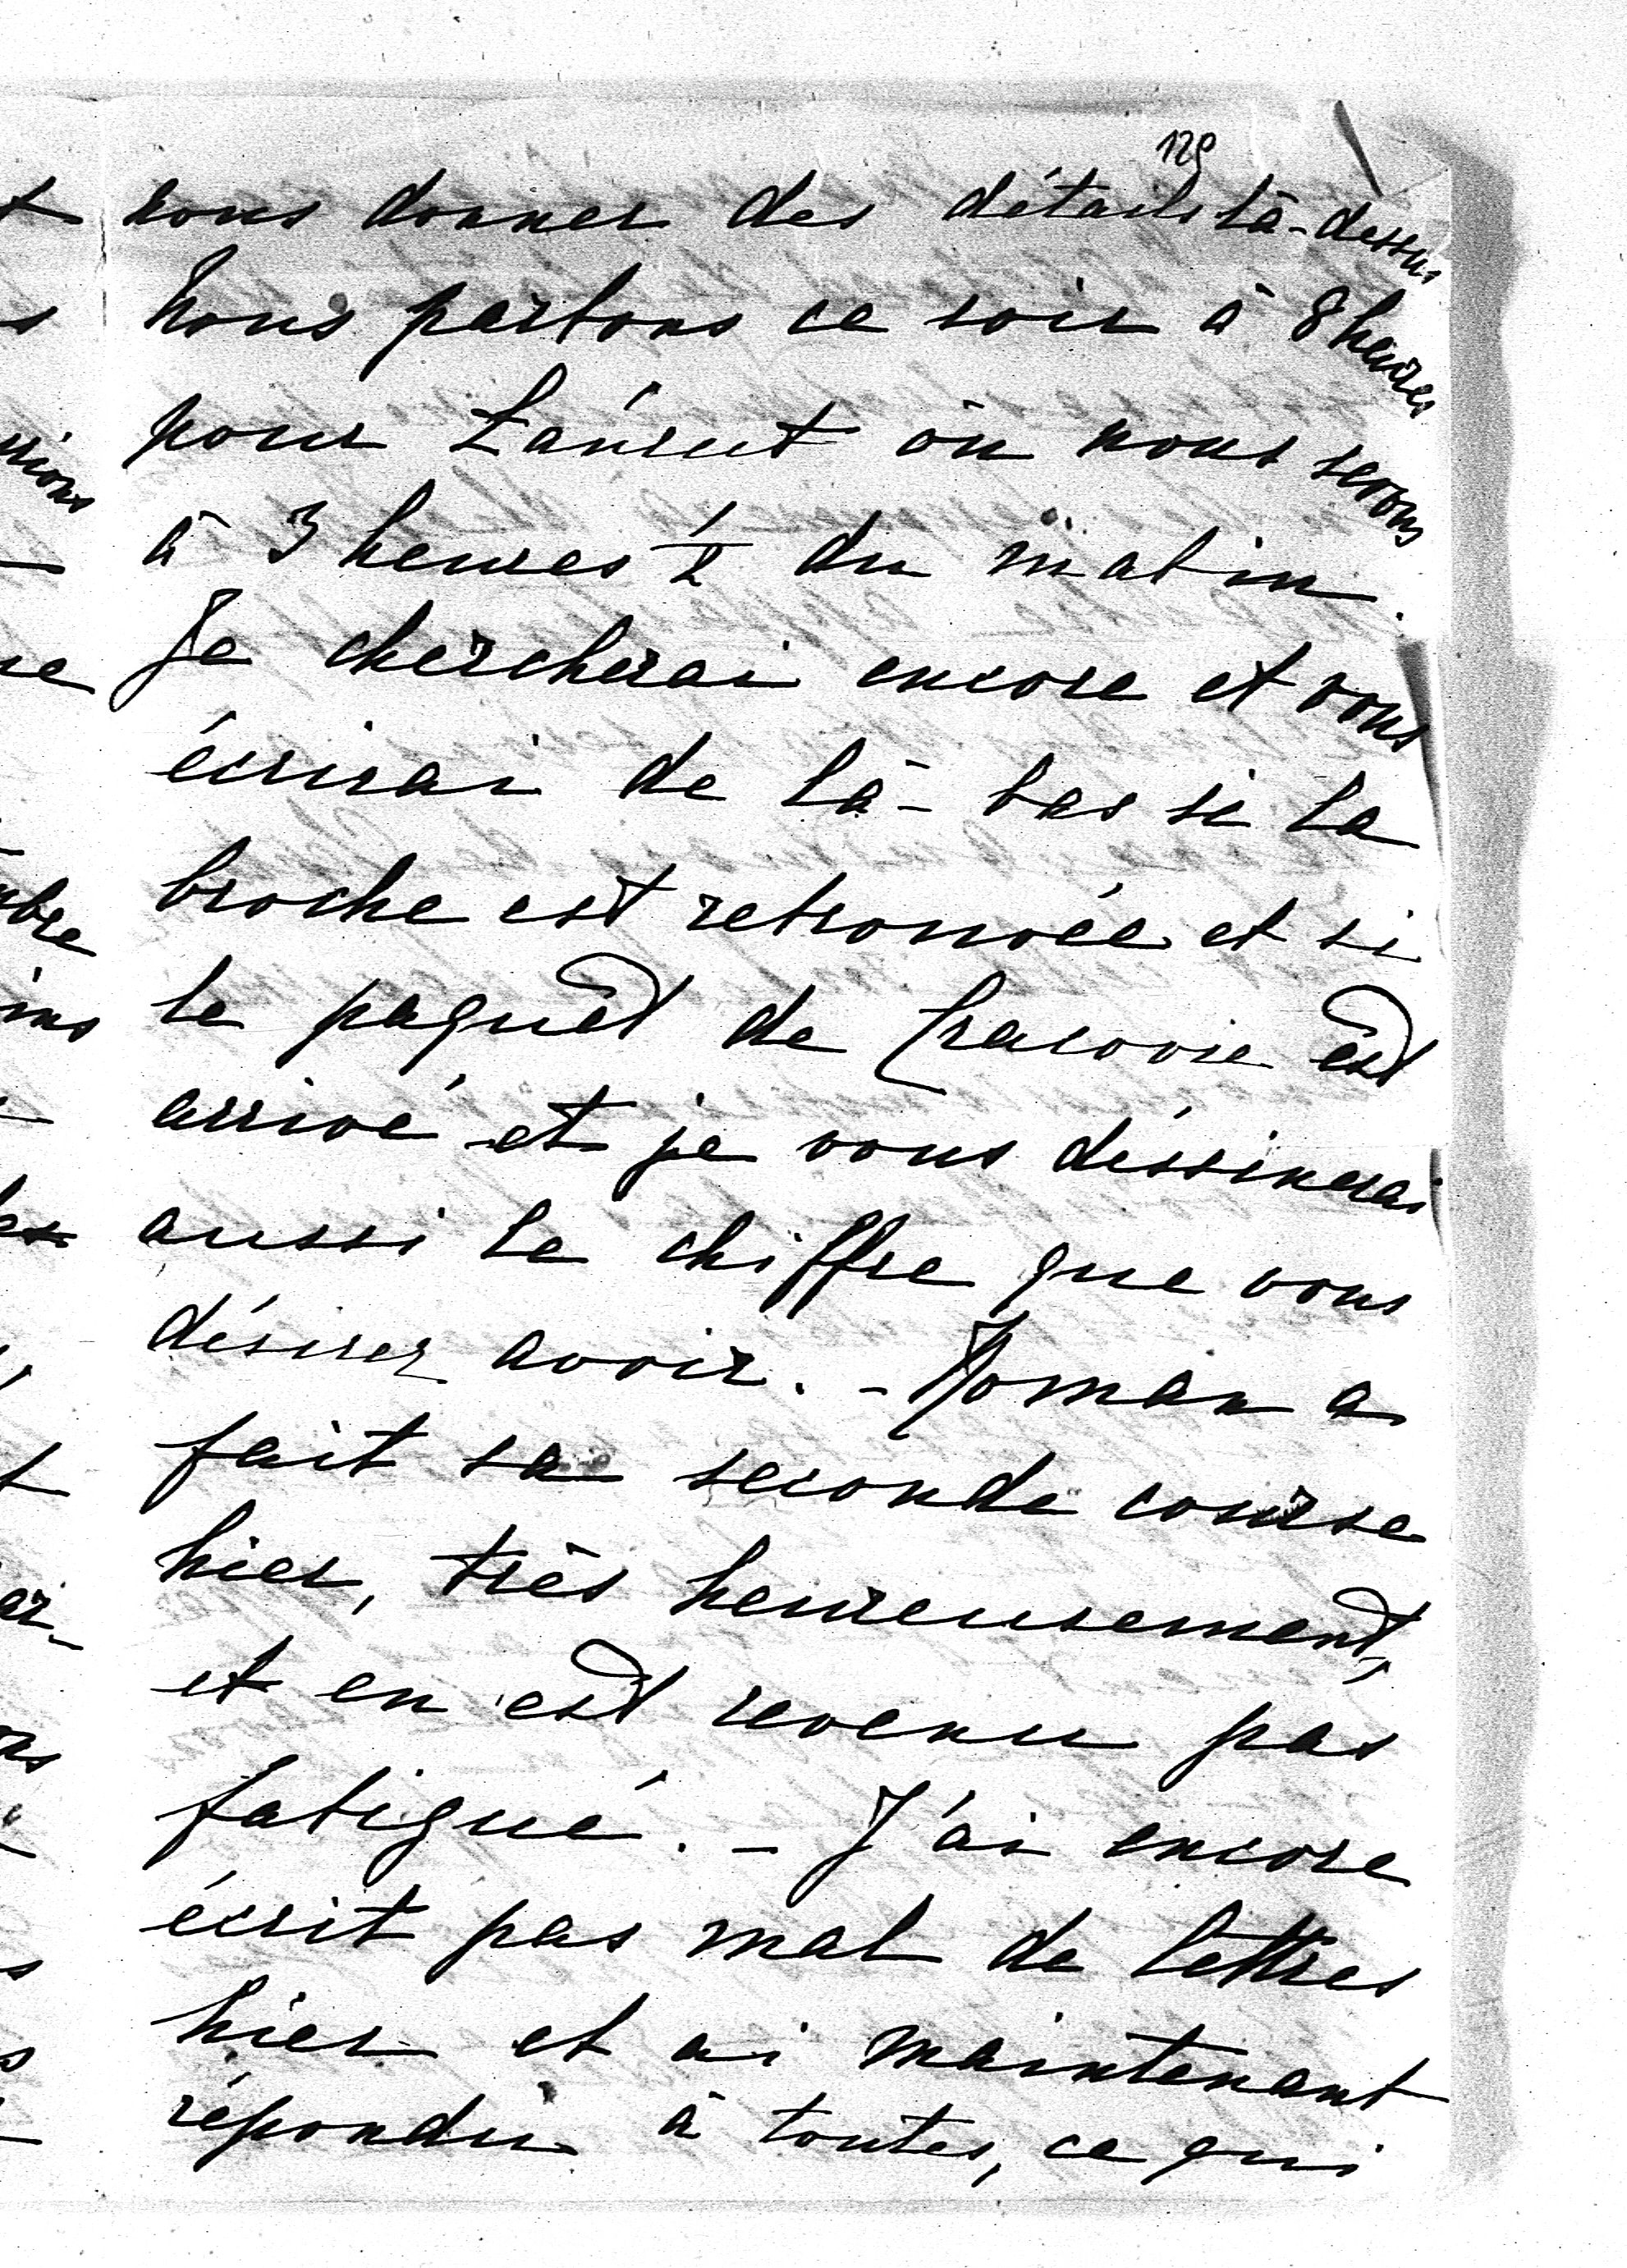 129
vous donner des détails là-dessus
Nous partons ce soir à 8 heures
pour Łańcut où nous serons
à 3 heures ½ du matin.
Je chercherai encore et vous
écrirai de là-bas si la
broche est retrouvée et si
le paquet de Cracovie est
arrivé et je vous déssinerai
aussi le chiffre que vous
désirez avoir. - Roman a
fait sa seconde course
hier, très heureusement,
et en est revenu pas
fatigué. - J'ai encore
écrit pas mal de lettres
hier et ai maintenant
répondu à toutes, ce qui